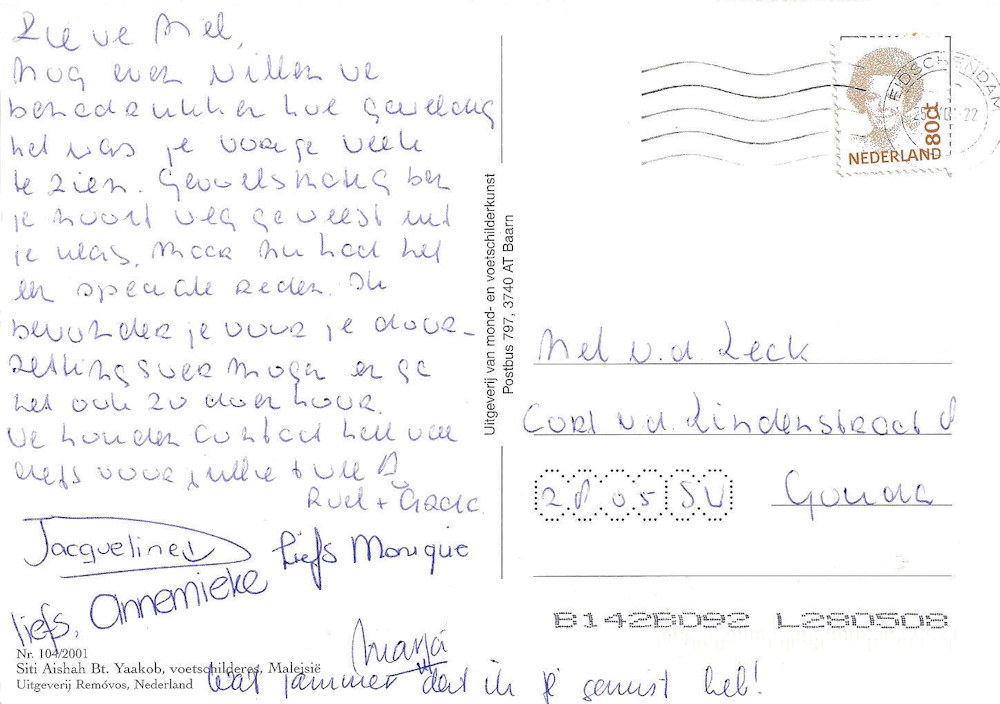 Lieve Mel,
Nog even willen we
benadrukken hoe geweldig
het was je vorige week
te zien. Gevoelsmatig ben
je nooit weg geweest uit
je klas, maar nu had het
een speciale reden. Ik
bewonder je voor je door-
zettingsvermogen en ga
het ook zo doen hoor.
We houden contact heel veel
liefs voor jullie twee
Ruud +
Jacqueline
Liefs Monique
liefs, Annemieke
Marja
Wat jammer dat ik je gemist heb!
Nr. 104/2001
Siti Aishah Bt. Yaakob, voetschilderes, Maleisië
Uitgeverij Removos, Nederland
Uitgeverij van mond- en voetschilderkunst
Postbus 797, 3740 AT Baarn
EIDSCHENDAM
80ct
NEDERLAND
Mel v.d. Leck
Cort v.d. Lindenstraat 8
2805 SV Gouda
B142BD92 L280508